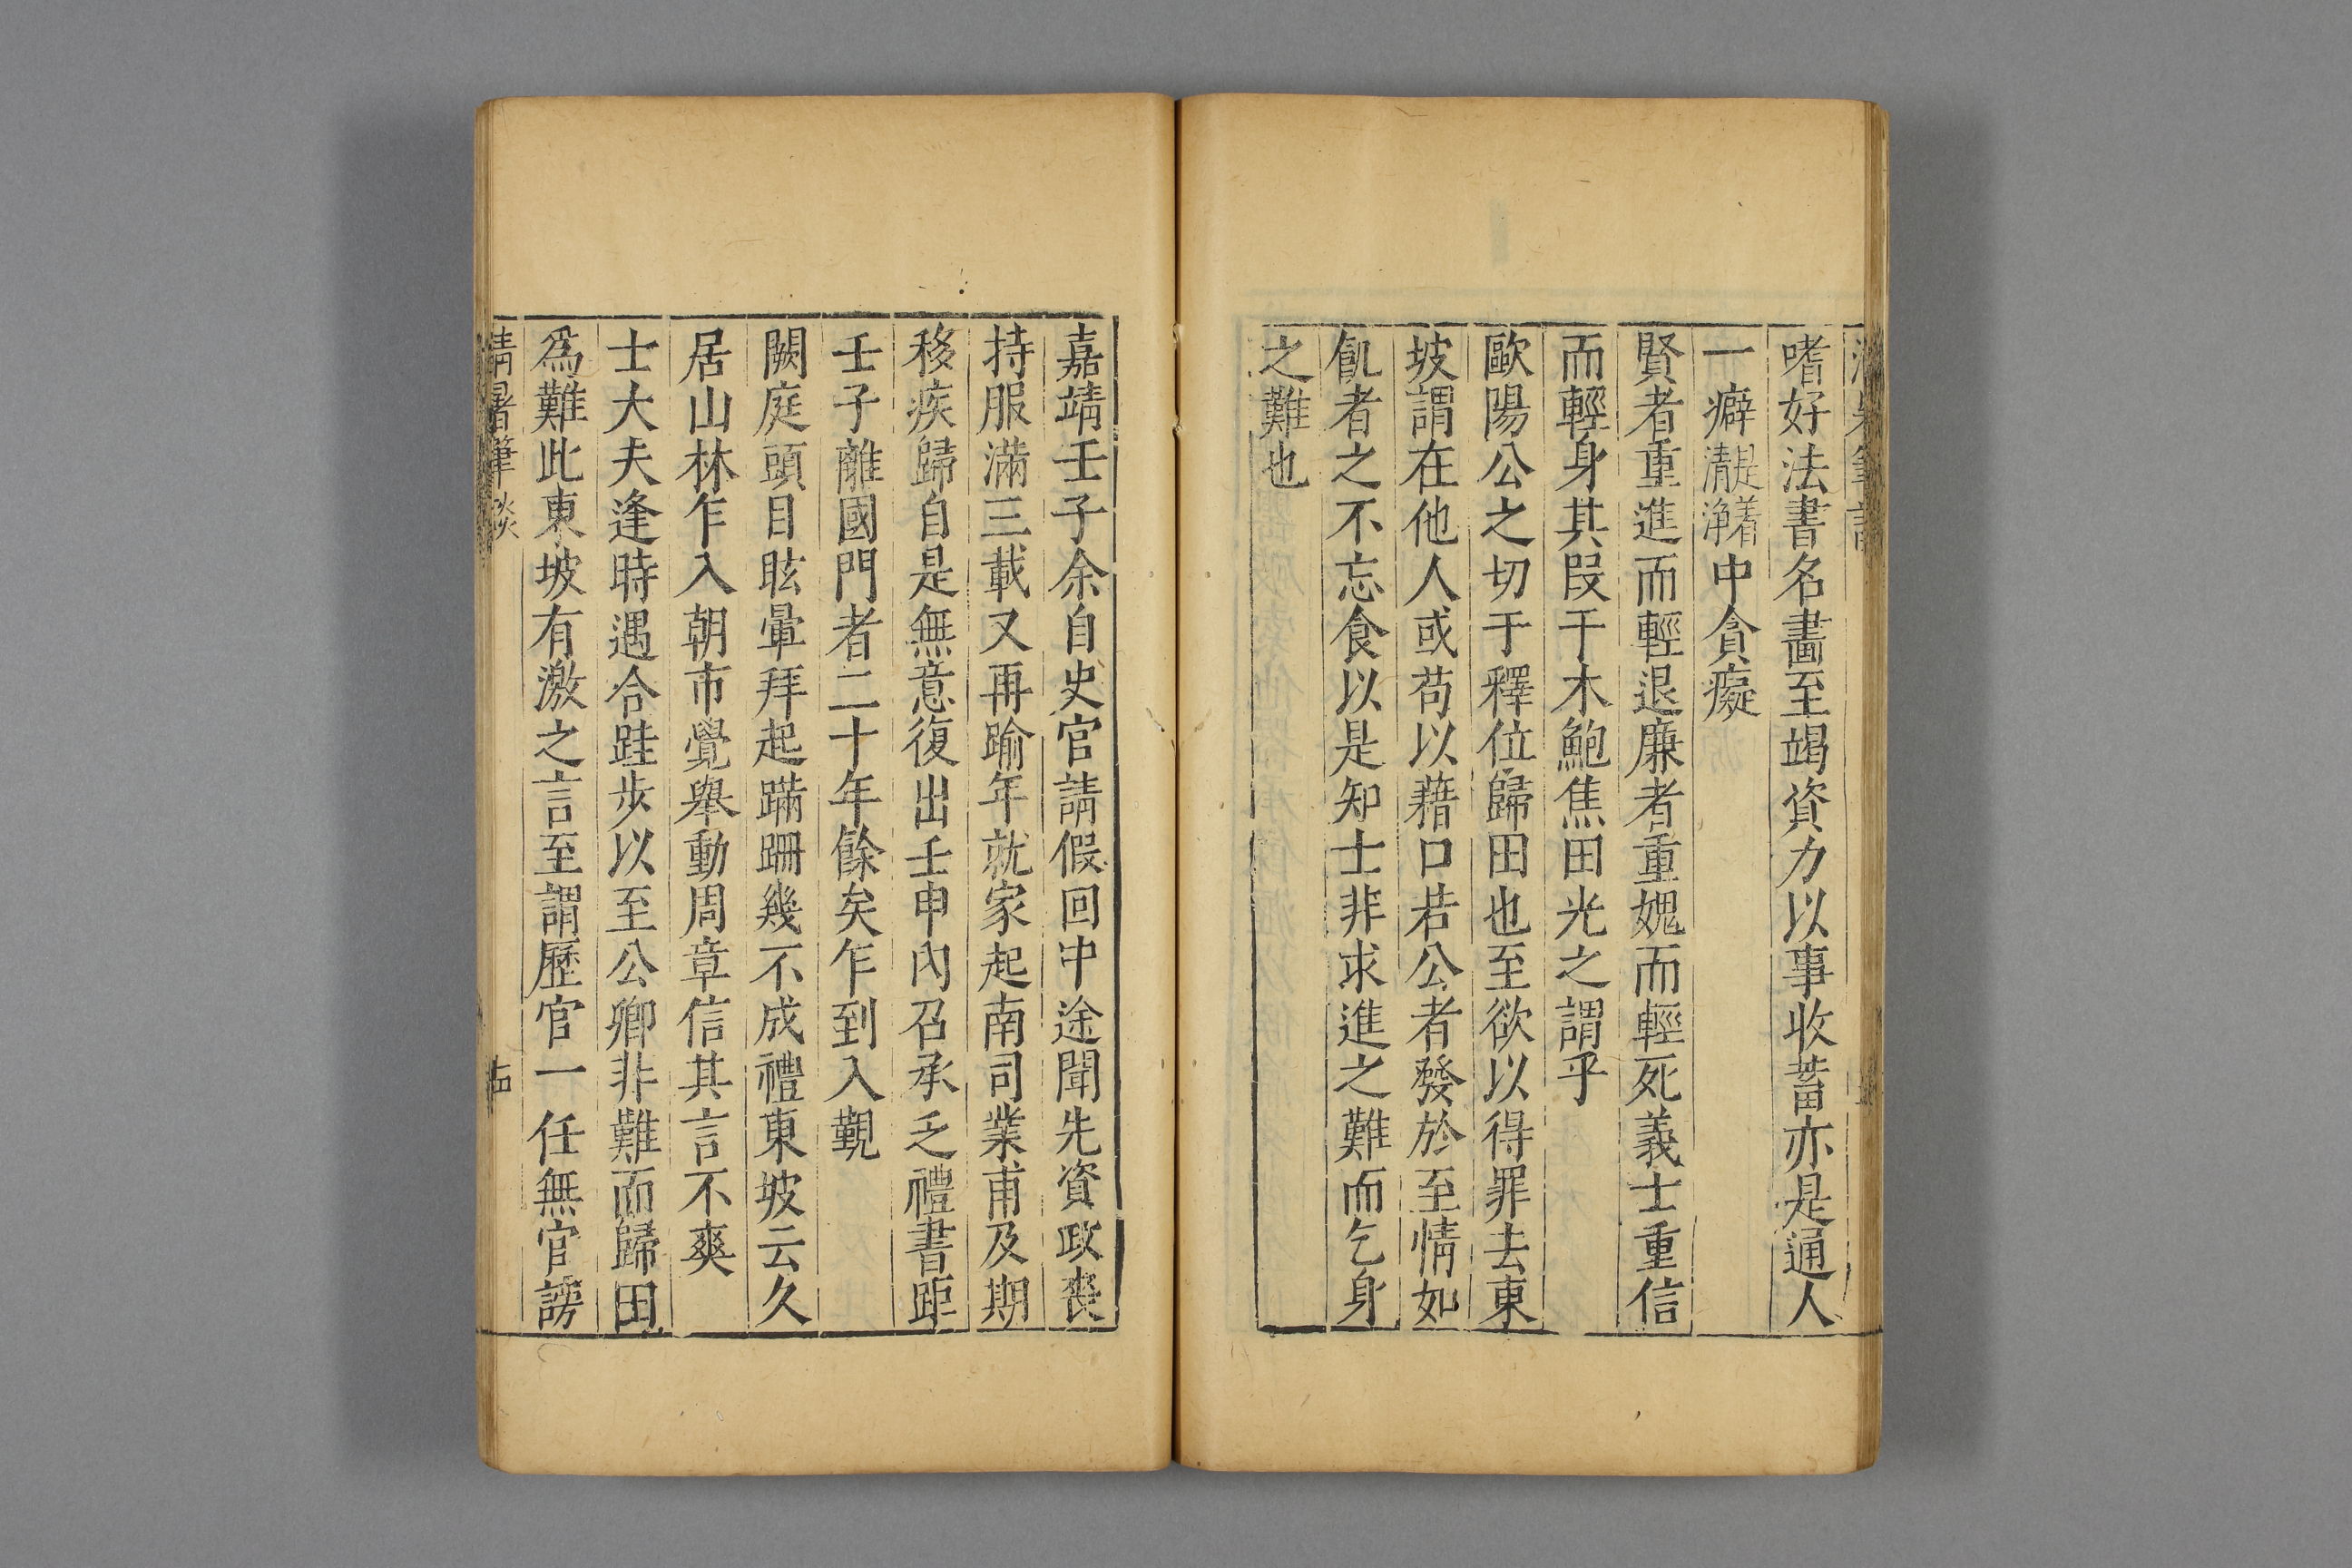 嗜好法書名畵至竭資力以事收蓄亦是通人
一癖是清着淨中貪癡
賢者重進而輕退廉者重媿而輕死義士重信
而輕身其段干木鮑焦田光之謂乎
歐陽公之切于釋位歸田也至欲以得罪去東
坡謂在他人或苟以藉口若公者發於至情如
飢者之不忘食以是知士非求進之難而乞身
之難也
嘉靖壬子余自史官請假回中途聞先資政喪
持服滿三載又再踰年就家起南司業甫及期
移疾歸自是無意復出壬申內召承乏禮書距
壬子離國門者二十年餘矣乍到入觀
闕庭頭目眩暈拜起蹣跚幾不成禮東坡云久
居山林乍入朝市覺舉動周章信其言不爽
士大夫逢時遇合跬步以至公卿非難而歸田
爲難此東坡有激之言至謂歷官一任無官謗
清暑筆談
十四